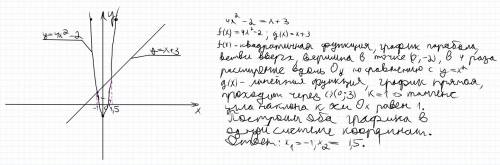 y
y=4x²-2
y=x+3
-1
1,5
x
4x²-2=x+3
f(x)=4x²-2; g(x)=x+3
f(x)-квадратичная функция, график парабола,
ветви вверх, вершина в точке (0,-2), в 4 раза
расширение вдоль Oy по сравнению с y=x²
g(x)-линейная функция, график прямая,
проходит через (0;3), k=1 - тангенс
угла наклона к оси Ox равен 1.
Построим оба графика в
одной системе координат.
Ответ: x₁=-1, x₂= 1,5.